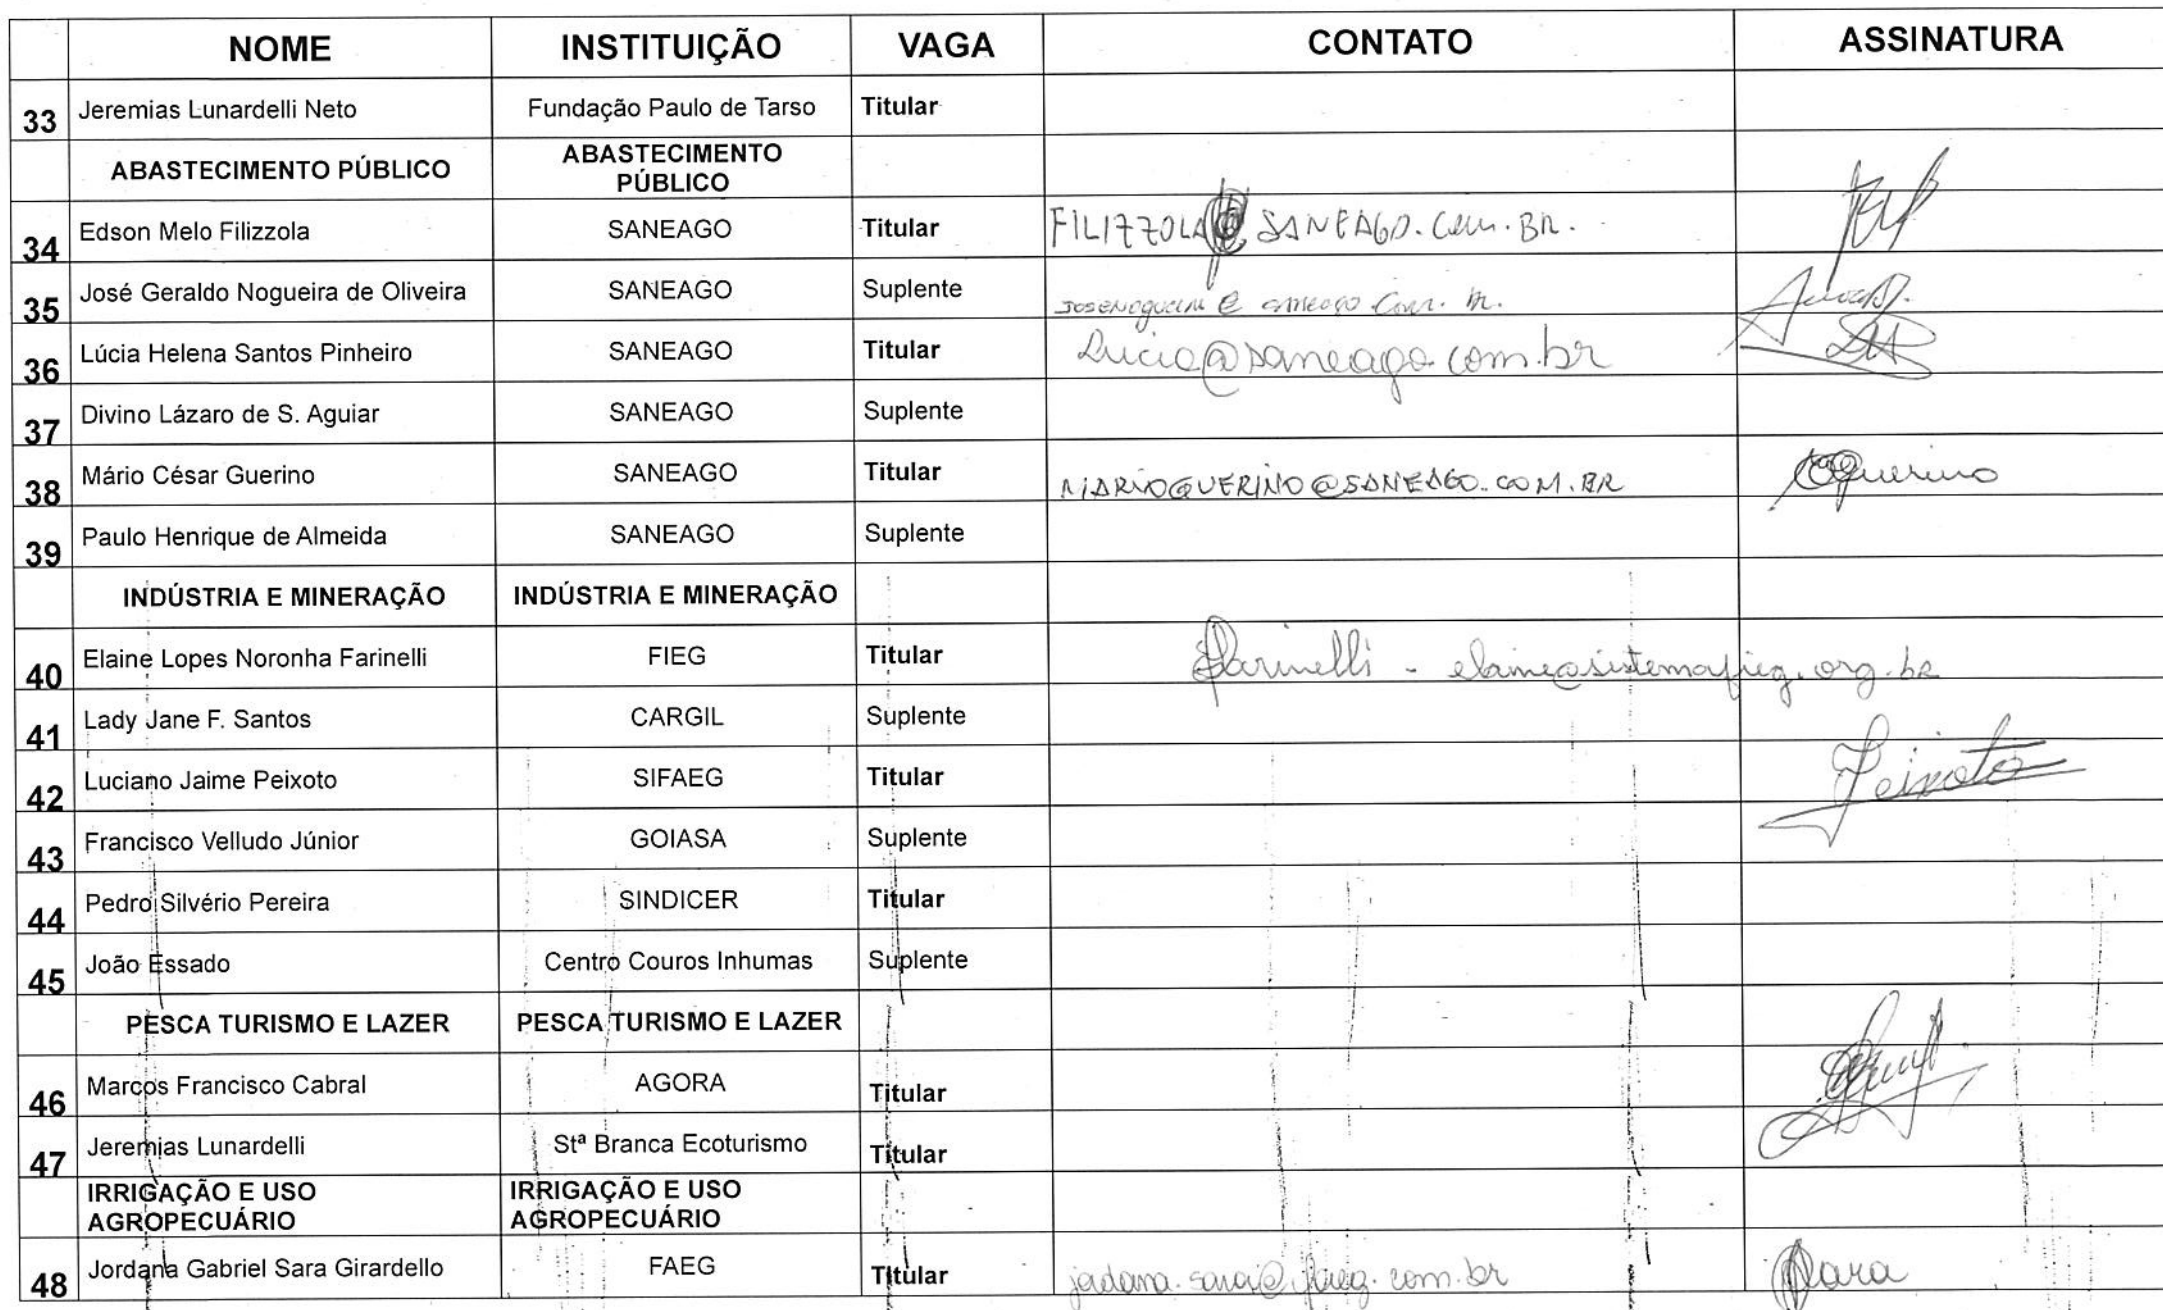 NOME INSTITUIÇÃO VAGA CONTATO ASSINATURA
33 Jeremias Lunardelli Neto Fundação Paulo de Tarso Titular
ABASTECIMENTO PÚBLICO ABASTECIMENTO PÚBLICO
34 Edson Melo Filizzola SANEAGO Titular FILIZZOLA@SANEAGO.COM.BR.
35 José Geraldo Nogueira de Oliveira SANEAGO Suplente
36 Lúcia Helena Santos Pinheiro SANEAGO Titular lucia@saneago.com.br
37 Divino Lázaro de S. Aguiar SANEAGO Suplente
38 Mário César Guerino SANEAGO Titular MARIOGUERINO@SANEAGO.COM.BR Guerino
39 Paulo Henrique de Almeida SANEAGO Suplente
INDÚSTRIA E MINERAÇÃO INDÚSTRIA E MINERAÇÃO
40 Elaine Lopes Noronha Farinelli FIEG Titular Farinelli - elaine@sistemafieg.org.br
41 Lady Jane F. Santos CARGIL Suplente
42 Luciano Jaime Peixoto SIFAEG Titular Peixoto
43 Francisco Velludo Júnior GOIASA Suplente
44 Pedro Silvério Pereira SINDICER Titular
45 João Essado Centro Couros Inhumas Suplente
PESCA TURISMO E LAZER PESCA TURISMO E LAZER
46 Marcos Francisco Cabral AGORA Titular
47 Jeremias Lunardelli Stª Branca Ecoturismo Titular
IRRIGAÇÃO E USO AGROPECUÁRIO IRRIGAÇÃO E USO AGROPECUÁRIO
48 Jordana Gabriel Sara Girardello FAEG Titular jordana.sara@faeg.com.br Sara